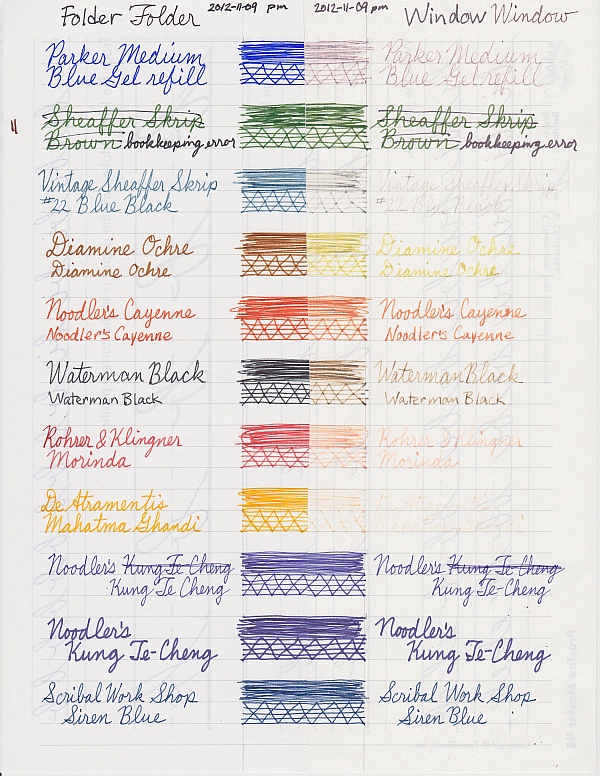 Folder Folder 2012-11-09 pm 2012-11-09 pm Window Window
Parker Medium
Blue Gel refill
Parker Medium
Blue Gel refill
Sheaffer Skrip
Brown bookkeeping error
Sheaffer Skrip
Brown bookkeeping error
Vintage Sheaffer Skrip
#22 Blue Black
Vintage Sheaffer Skrip
#22 Blue Black
Diamine Ochre
Diamine Ochre
Diamine Ochre
Diamine Ochre
Noodler's Cayenne
Noodler's Cayenne
Noodler's Cayenne
Noodler's Cayenne
Waterman Black
Waterman Black
Waterman Black
Waterman Black
Rohrer & Klingner
Morinda
Rohrer & Klingner
Morinda
De Atramentis
Mahatma Ghandi
De Atramentis
Mahatma Ghandi
Noodler's Kung Te-Cheng
Kung Te Cheng
Noodler's Kung Te-Cheng
Kung Te-Cheng
Noodler's
Kung Te-Cheng
Noodler's
Kung Te-Cheng
Scribal Work Shop
Siren Blue
Scribal Work Shop
Siren Blue